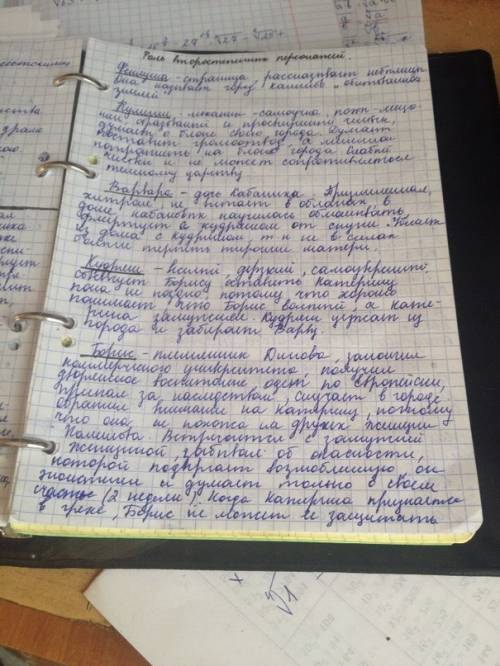 Роль второстепенных персонажей.
Феклуша - странница рассказывает небылицы
Она называет город калинов "обитованная
землей.
Кулигин, механик-самоучка, поэт-лиро-
ник образваный и просвящённый человек,
думает о благе своего города. Думает
поставить громоотвод, а миллион
потратить на благо города. Слабый
человек не может сопротивляться
тёмному царству
Варвара - дочь Кабанихи. Приземленная,
хитрая, не витает в облаках, в
доме кабановых научилась обманывать,
флиртует с кудряшом от скуки. Убегает
из дома с кудряшом, т.к не в силах
больше терпеть тирании матери.
Кудряш - весёлый, дерзкий, самоуверенный.
советует Борису оставить катерину
пока не поздно, потому что хорошо
понимает, что Борис холостой, а кате-
рина замужем. Кудряш уезжает из
города и забирает Варю.
Борис - племянник Дикого, закончил
коммерческого университета, получил
дворянское воспитание, одет по Европейски,
приехал за наследством, скучает в городе
обратил внимание на катерину, потому
что она не похожа на других женщин
Калинова. Встречается с замужней
женщиной, забывая об опасности,
которой подвергает возлюбленную, он
эгоистичен и думает только о своём
счастье (2 недели). Когда катерина признается
в грехе, Борис не может её защитить